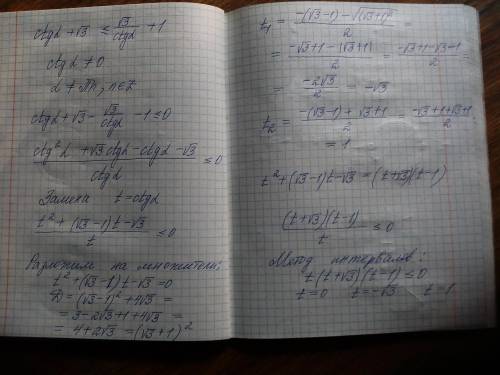 ctgα + √3 ≤ √3/ctgα + 1
ctgα ≠ 0
α ≠ πn, n∈Z
ctgα + √3 - √3/ctgα - 1 ≤ 0
(ctg²α + √3ctgα - ctgα - √3)/ctgα ≤ 0
Замена t = ctgα
(t² + (√3-1)t - √3)/t ≤ 0
Разложим на множители:
t² + (√3-1)t - √3 = 0
D = (√3-1)² + 4√3 =
= 3 - 2√3 + 1 + 4√3 =
= 4 + 2√3 = (√3+1)²
t₁ = (-(√3-1) - √(√3+1)²)/2 =
= (-√3+1-(√3+1))/2 = (-√3+1-√3-1)/2 =
= -2√3/2 = -√3
t₂ = (-(√3-1) + √3+1)/2 = (-√3+1+√3+1)/2
= 1
t² + (√3-1)t - √3 = (t+√3)(t-1)
(t+√3)(t-1)/t ≤ 0
Метод интервалов:
t(t+√3)(t-1) ≤ 0
t=0 t=-√3 t=1